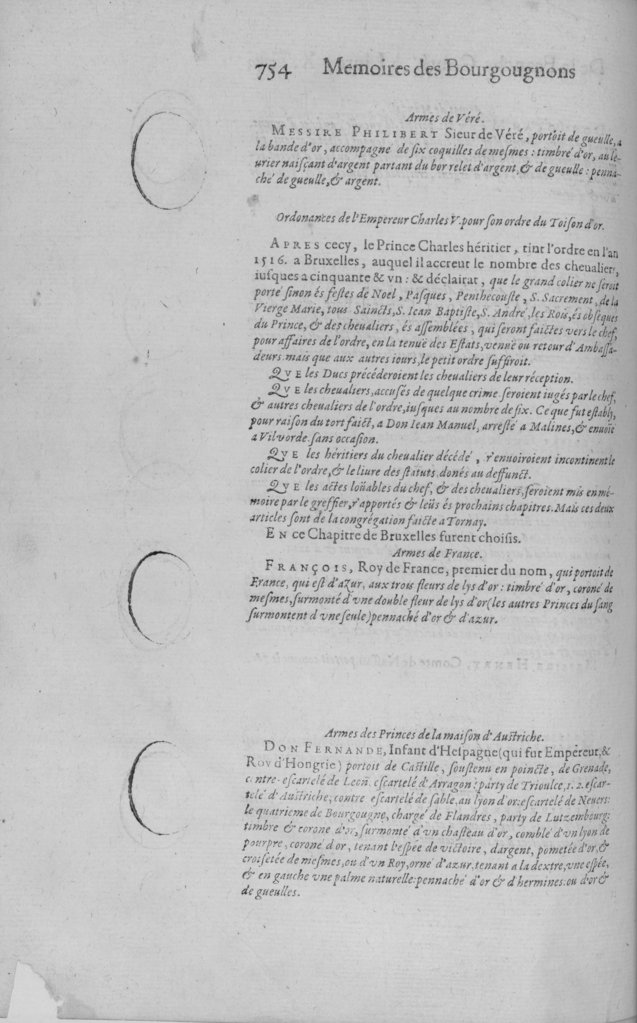 754 Memoires des Bourgougnons
Armes de Véré.
MESSIRE PHILIBERT Sieur de Véré, portoit de gueulle, a
la bande d'or, accompagne de six coquilles de mesmes : timbré d'or, au le-
urier naisçant d'argent partant du borrelet d'argent & de gueulle : penna-
ché de gueulle, & argent.
Ordonances de l'Empereur Charles V. pour son ordre du Toison d'or.
APRES cecy, le Prince Charles héritier, tint l'ordre en l'an
1516. a Bruxelles, auquel il accreut le nombre des chevaliers,
iusques a cinquante & vn : & déclairat, que le grand colier ne seroit
porté sinon és festes de Noel, Pasques, Penthecouste, S. Sacrement, de la
Vierge Marie, tous Saincts, S. Iean Baptiste, S. André, les Rois, és obséques
du Prince, & des chevaliers, és assemblées, qui seront faictes vers le chef,
pour affaires de l'ordre, en la tenuë des Estats, venuë ou retour d'Ambassa-
deurs mais que aux autres iours, le petit ordre suffiroit.
QVE les Ducs précéderoient les chevaliers de leur réception.
QVE les chevaliers, accusés de quelque crime seroient iugés par le chef,
& autres chevaliers de l'ordre, iusques au nombre de six. Ce que fut estably,
pour raison du tort faict, a Don Iean Manuel, arresté a Malines, & envoié
a Vilvorde sans occasion.
QVE les héritiers du chevalier décédé, r'envoiroient incontinent le
colier de l'ordre, & le livre des statuts, donés au deffunct.
QVE les actes loüables du chef, & des chevaliers, seroient mis en mé-
moire par le greffier, r'apportés & leüs és prochains chapitres. Mais ces deux
articles sont de la congrégation faicte a Tornay.
EN ce Chapitre de Bruxelles furent choisis.
Armes de France.
FRANÇOIS, Roy de France, premier du nom, qui portoit de
France, qui est d'azur, aux trois fleurs de lys d'or : timbré d'or, coroné de
mesmes, surmonté d'vne double fleur de lys d'or (les autres Princes du sang
surmontent d'vne seule) pennaché d'or & d'azur.
Armes des Princes de la maison d'Austriche.
DON FERNANDE, Infant d'Hespagne (qui fut Empéreur, &
Roy d'Hongrie) portoit de Castille, soustenu en poincte, de Grenade,
contre-escartelé de Leon. escartelé d'Arragon : party de 1. 2. escar-
telé d'Austriche, contre escartelé de sable, au lyon d'or: escartelé de Nevers:
le quatrieme de Bourgougne, chargé de Flandres, party de Lutzembourg:
timbre & corone d'or, surmonté d'vn chasteau d'or, comblé d'vn lyon de
pourpre, coroné d'or, tenant l'espée de victoire, d'argent, pometée d'or, &
croisetée de mesmes, ou d'vn Roy, orné d'azur, tenant a la dextre, vne espée,
& en gauche vne palme naturelle: pennaché d'or & d'hermines. ou d'or &
de gueulles.